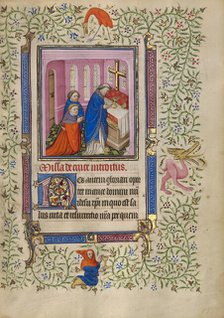 Missa de cruce introitus
Nos autem gloriari opor
tet in cruce domini nri
ihesu xpi in quo est sa
lus vita et resurrectio nra per quem